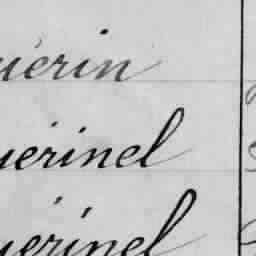 uérin
uérinel
uérinel